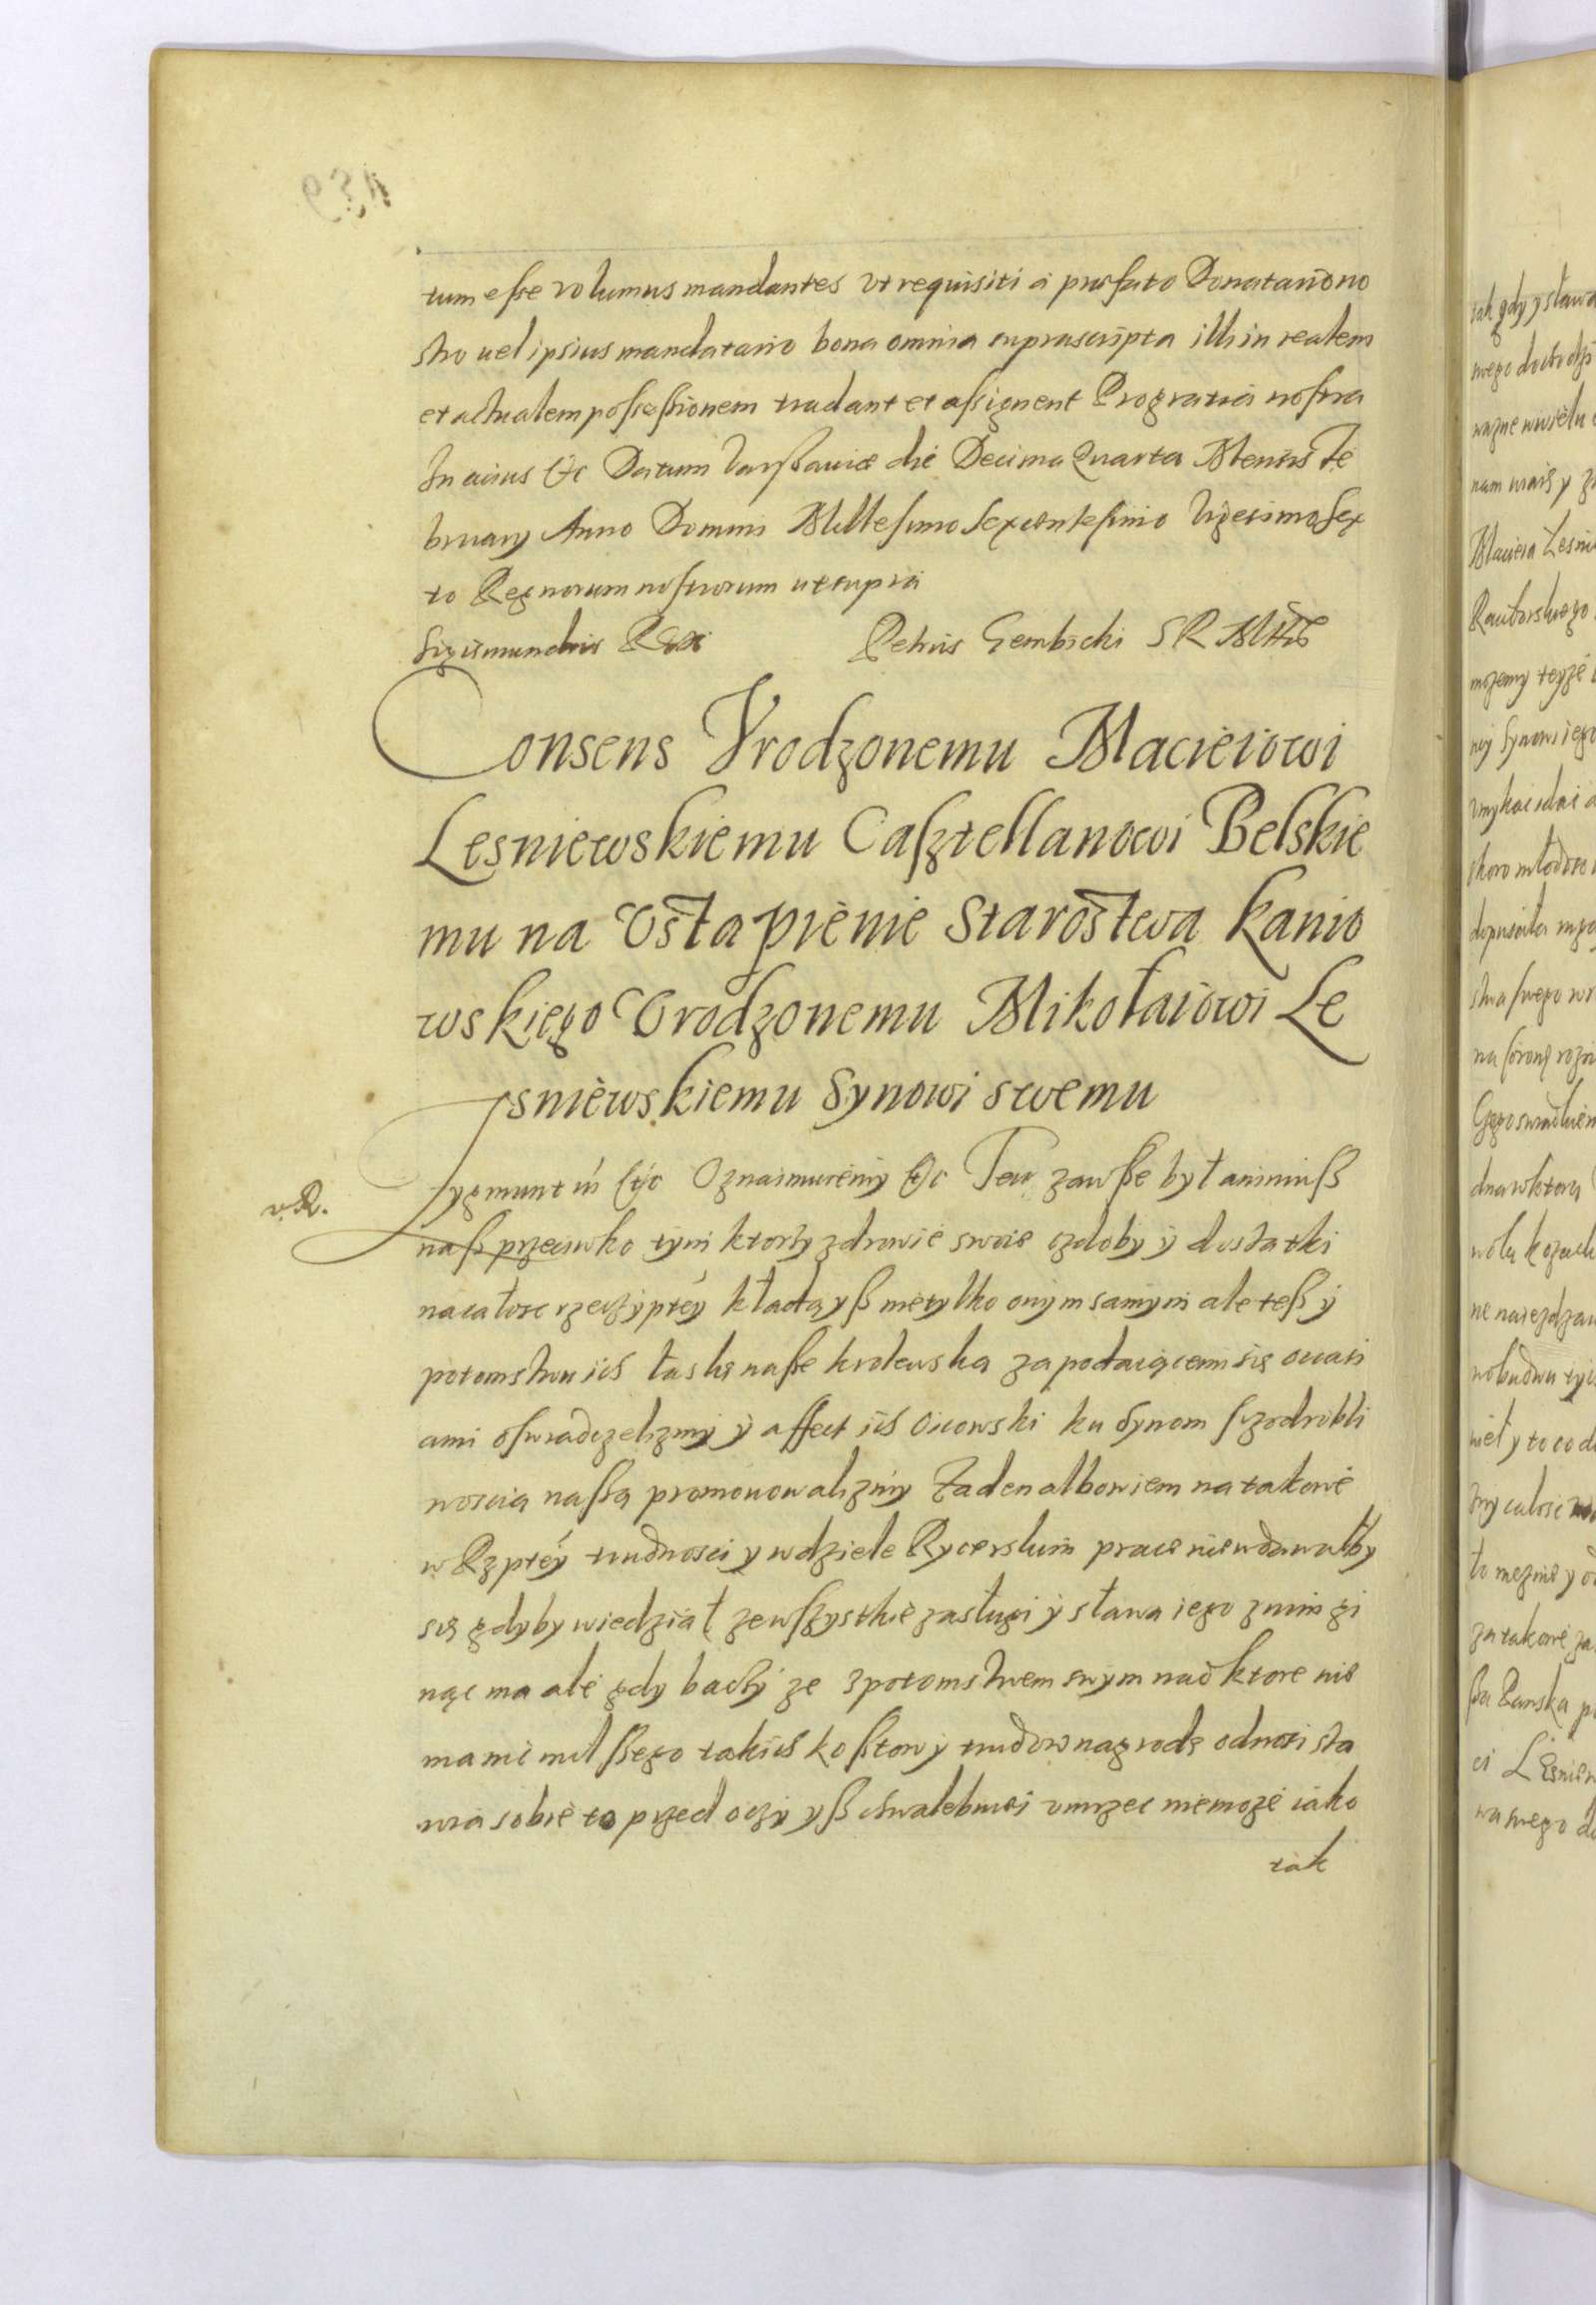 tum esse volumus mandantes vt requisiti á praefato Donatario no
stro uel ipsius mandatario bona omnia suprascripta illi in realem
et actualem possessionem tradant et assignent Pro gratia nostra
In cuius &c Datum Varssauiae die Decima Quarta Mensis Fe
bruarij Anno Domini Millesimo Sexcentesimo Vigesimo Sex
to Regnorum nostrorum ut supra
Sigismundus Rex Petrus Gembicki S R M
Consens Vrodzonemu Macieiowi
Lesniewskiemu Casztellanowi Belskie
mu na Vstąpienie Starostwa Kanio
wskiego Vrodzonemu Mikołaiowi Le
sniewskiemu Synowi swemu
v. R.
Zygmunt iii &c Oznaimuiemy &c Ten zawsße był animuß
naß przeciwko tym ktorzy zdrowie swoie ozdoby y dostatki
na całosc rzeczyptey kładą yß nietylko onym samym ale teß y
potomstwu ich łaskę naße krolewską za podaiącemi się occasi
ami oswiadczelizmy y affect ich Oicowski ku Synom sczodrobli
woscią naßą promowowalizmy Zaden albowiem na takowe
w Rzptey trudnosci y w dziele Rycerskim prace nie wdawałby
się gdyby wiedział ze wszystkie zasługi y sława iego z nim gi
nąc ma ale gdy baczy ze z potomstwem swym nad ktore nic
ma nic milßego takich kosztow y trudow nagrodę odnosi sta
wia sobie to przed oczy yß chwalebniei vmrzec niemoze iako
tak